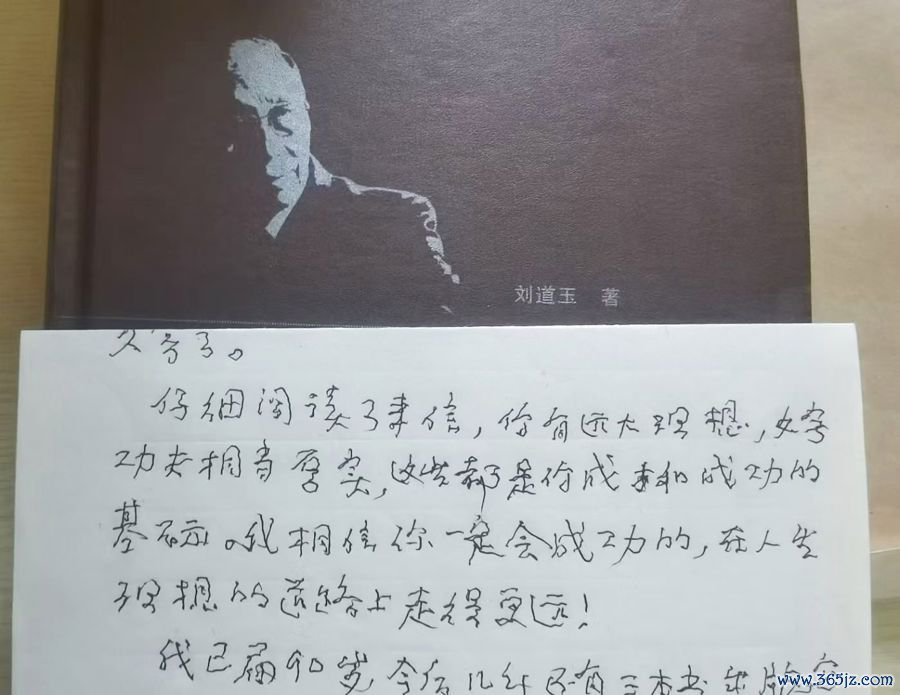 刘道玉 著
了。
仔细阅读了来信,你有远大理想,文字
功夫相当厚实,这些都是你成和成功的
基础。我相信你一定会成功的,在人生
理想的道路上走得更远!
我已届90岁,今后几年还有三本书出版
www.365jz.com